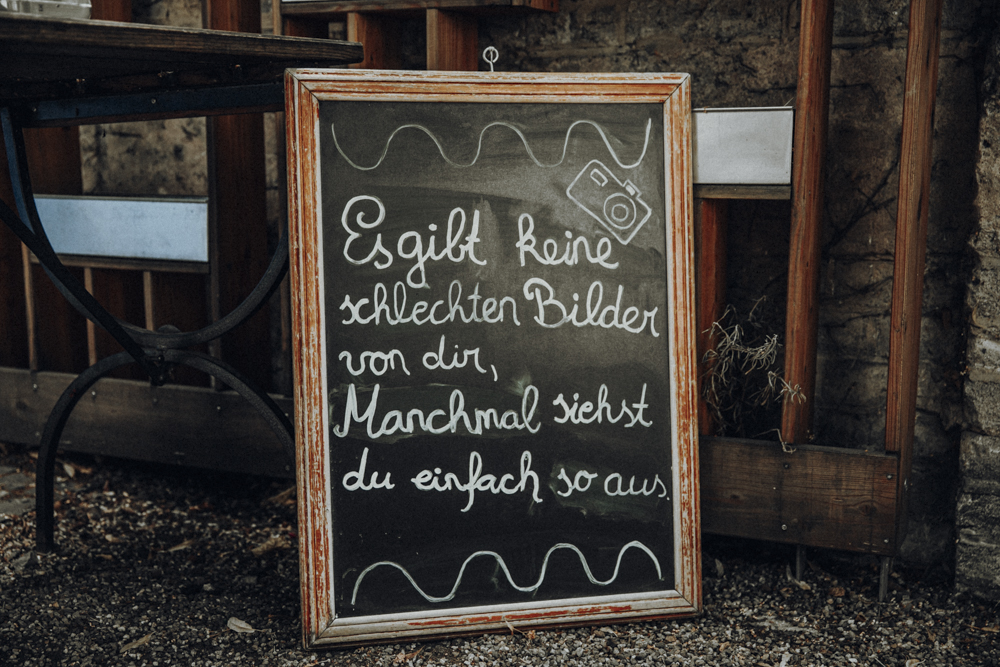 Es gibt keine
schlechten Bilder
von dir,
Manchmal siehst
du einfach so aus.